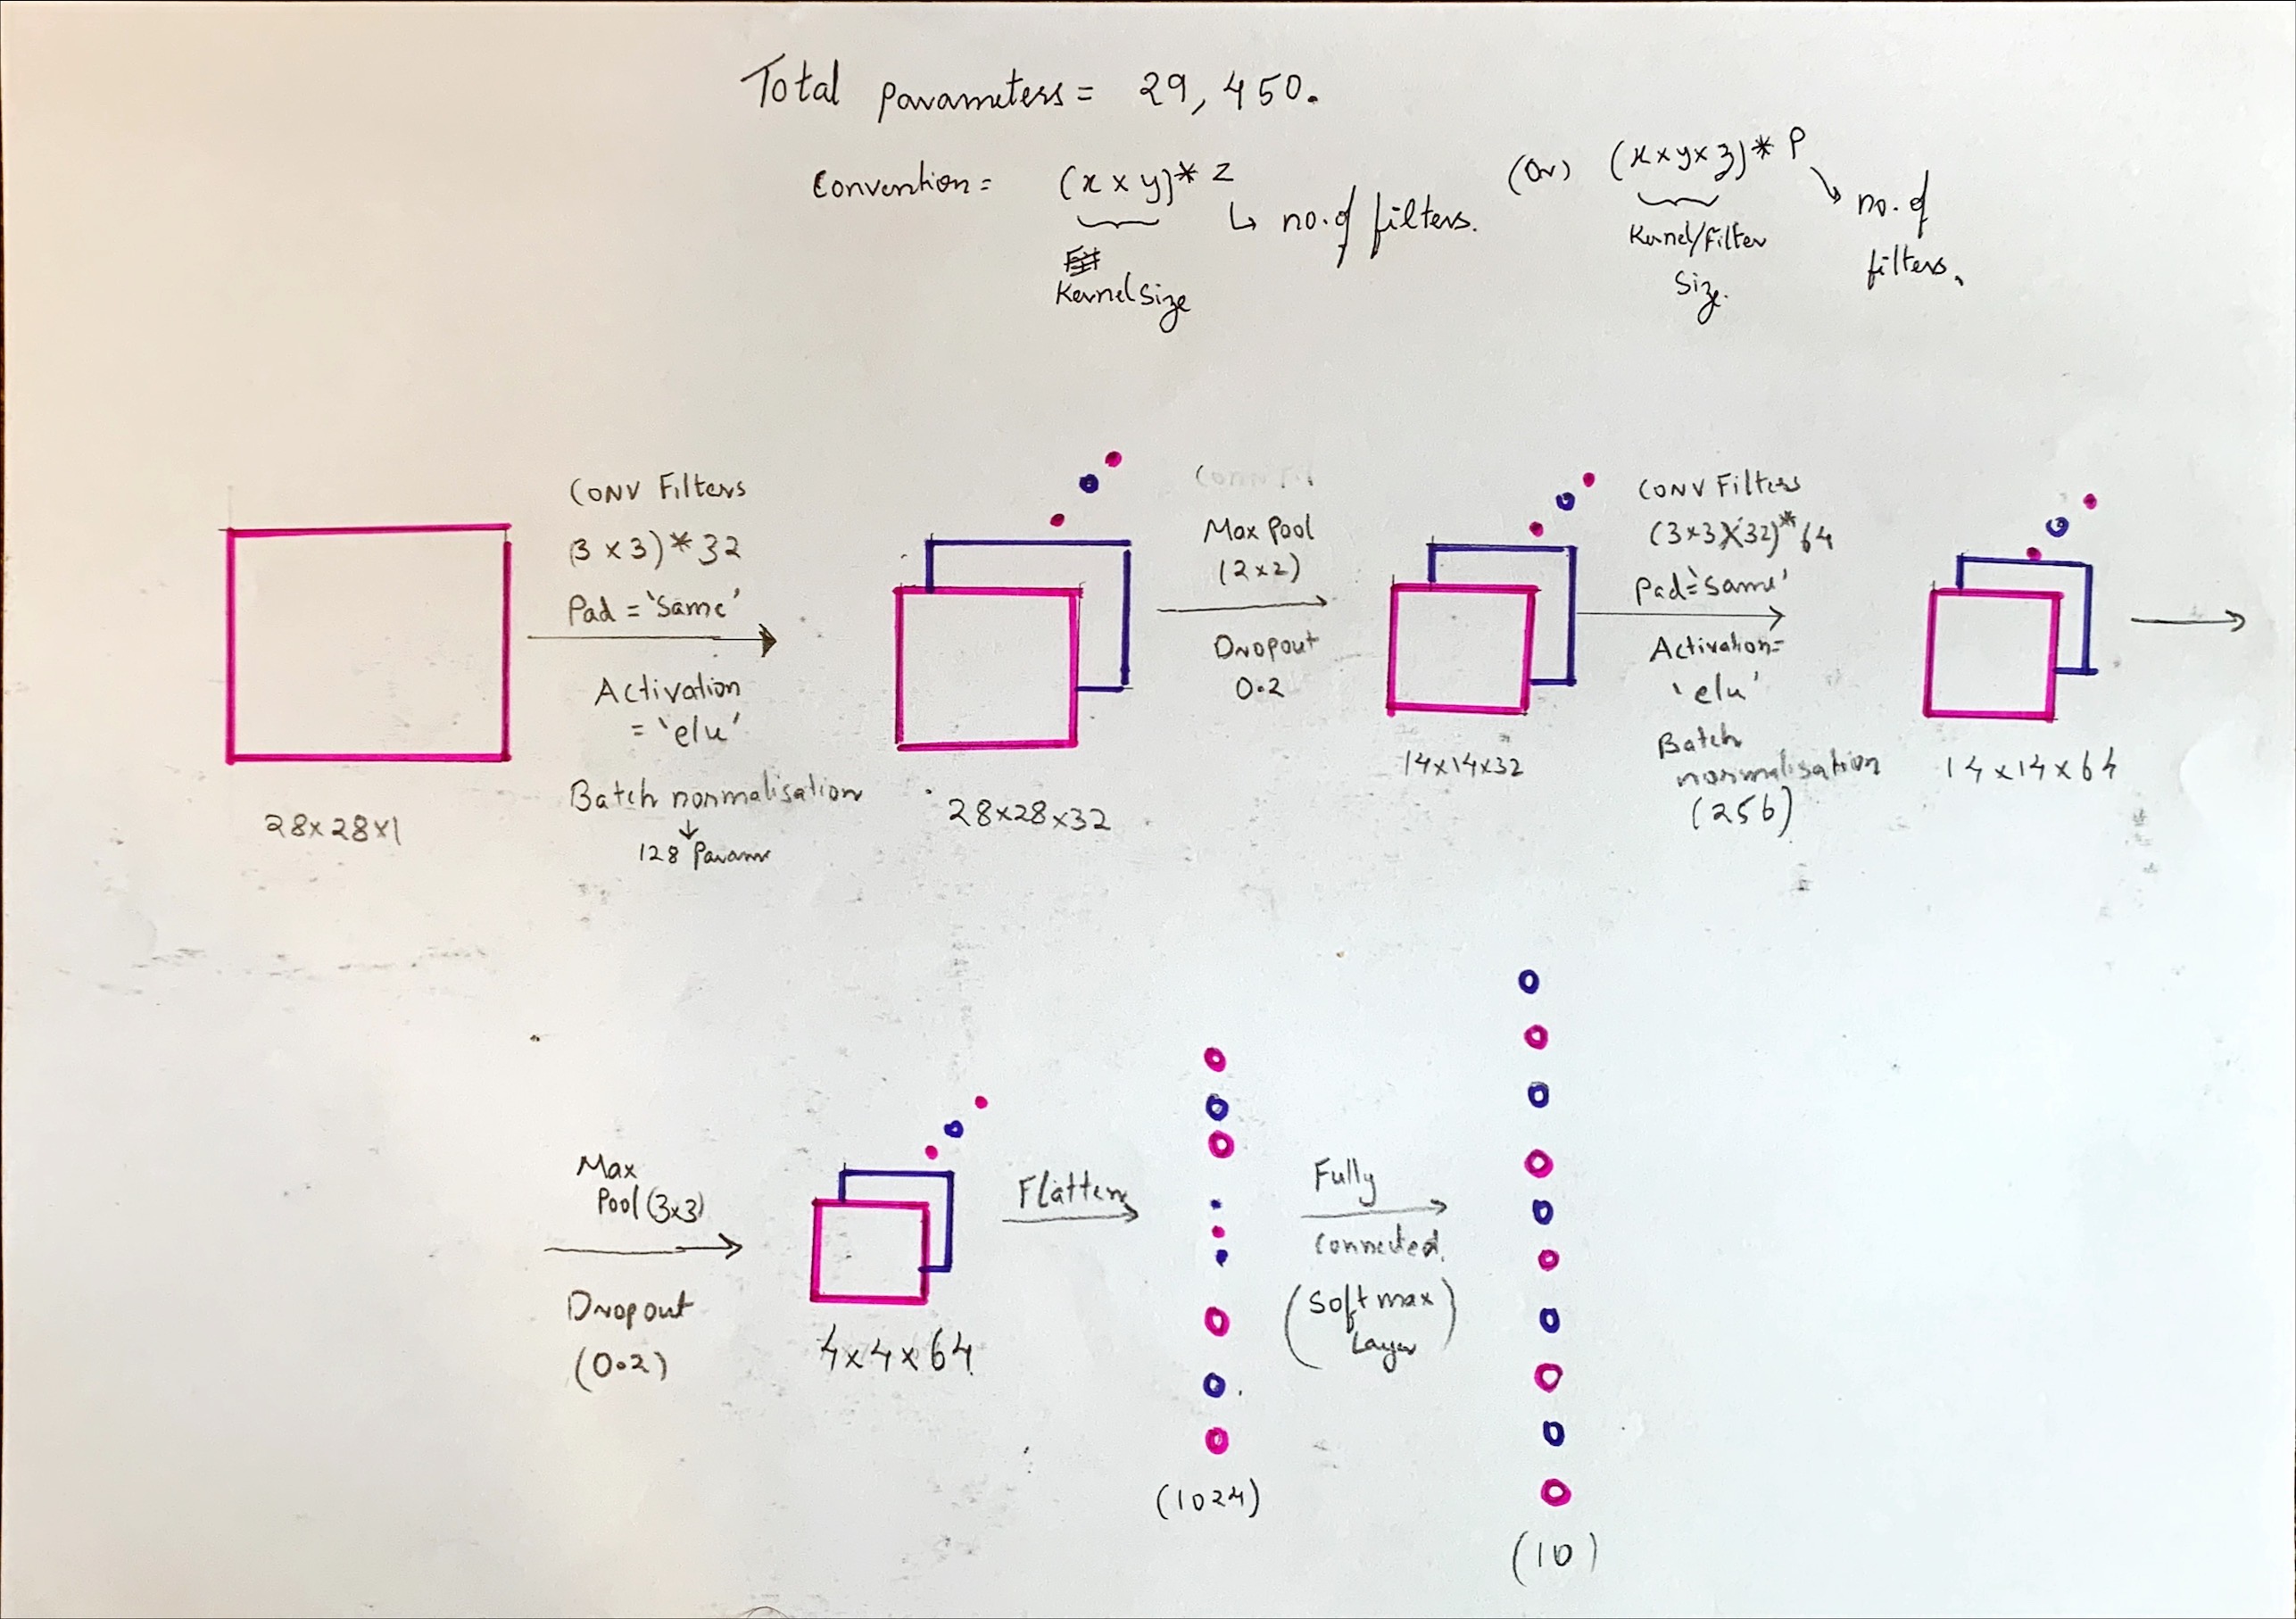 Total parameters = 29,450.
Convention = (x x y) * z (Or) (x x y x z) * P
↳ no. of filters.
Kernel Size
Kernel/Filter
Size.
no. of
filters.
CONV Filters
(3 x 3) * 32
Pad = 'Same'
Activation
= 'elu'
Batch normalisation
↓
128 Params
28x28x1
28x28x32
Max Pool
(2x2)
Dropout
0.2
14x14x32
CONV Filters
(3x3x32)*64
Pad='same'
Activation=
'elu'
Batch
normalisation
(256)
14x14x64
Max
Pool (3x3)
Dropout
(0.2)
4x4x64
Flatten
(1024)
Fully
Connected.
(Softmax
Layer)
(10)